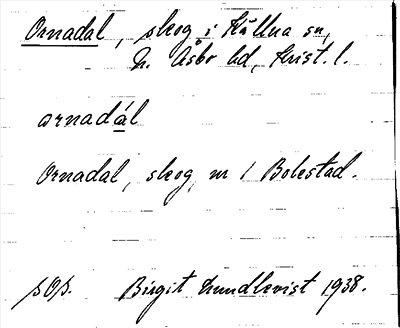 Ornadal, skog i Källna sn,
N. Åsbo hd, Krist. l.
arnadál
Ornadal, skog, nr 1 Bolestad.
sOs. Birgit Lundkvist 1938.